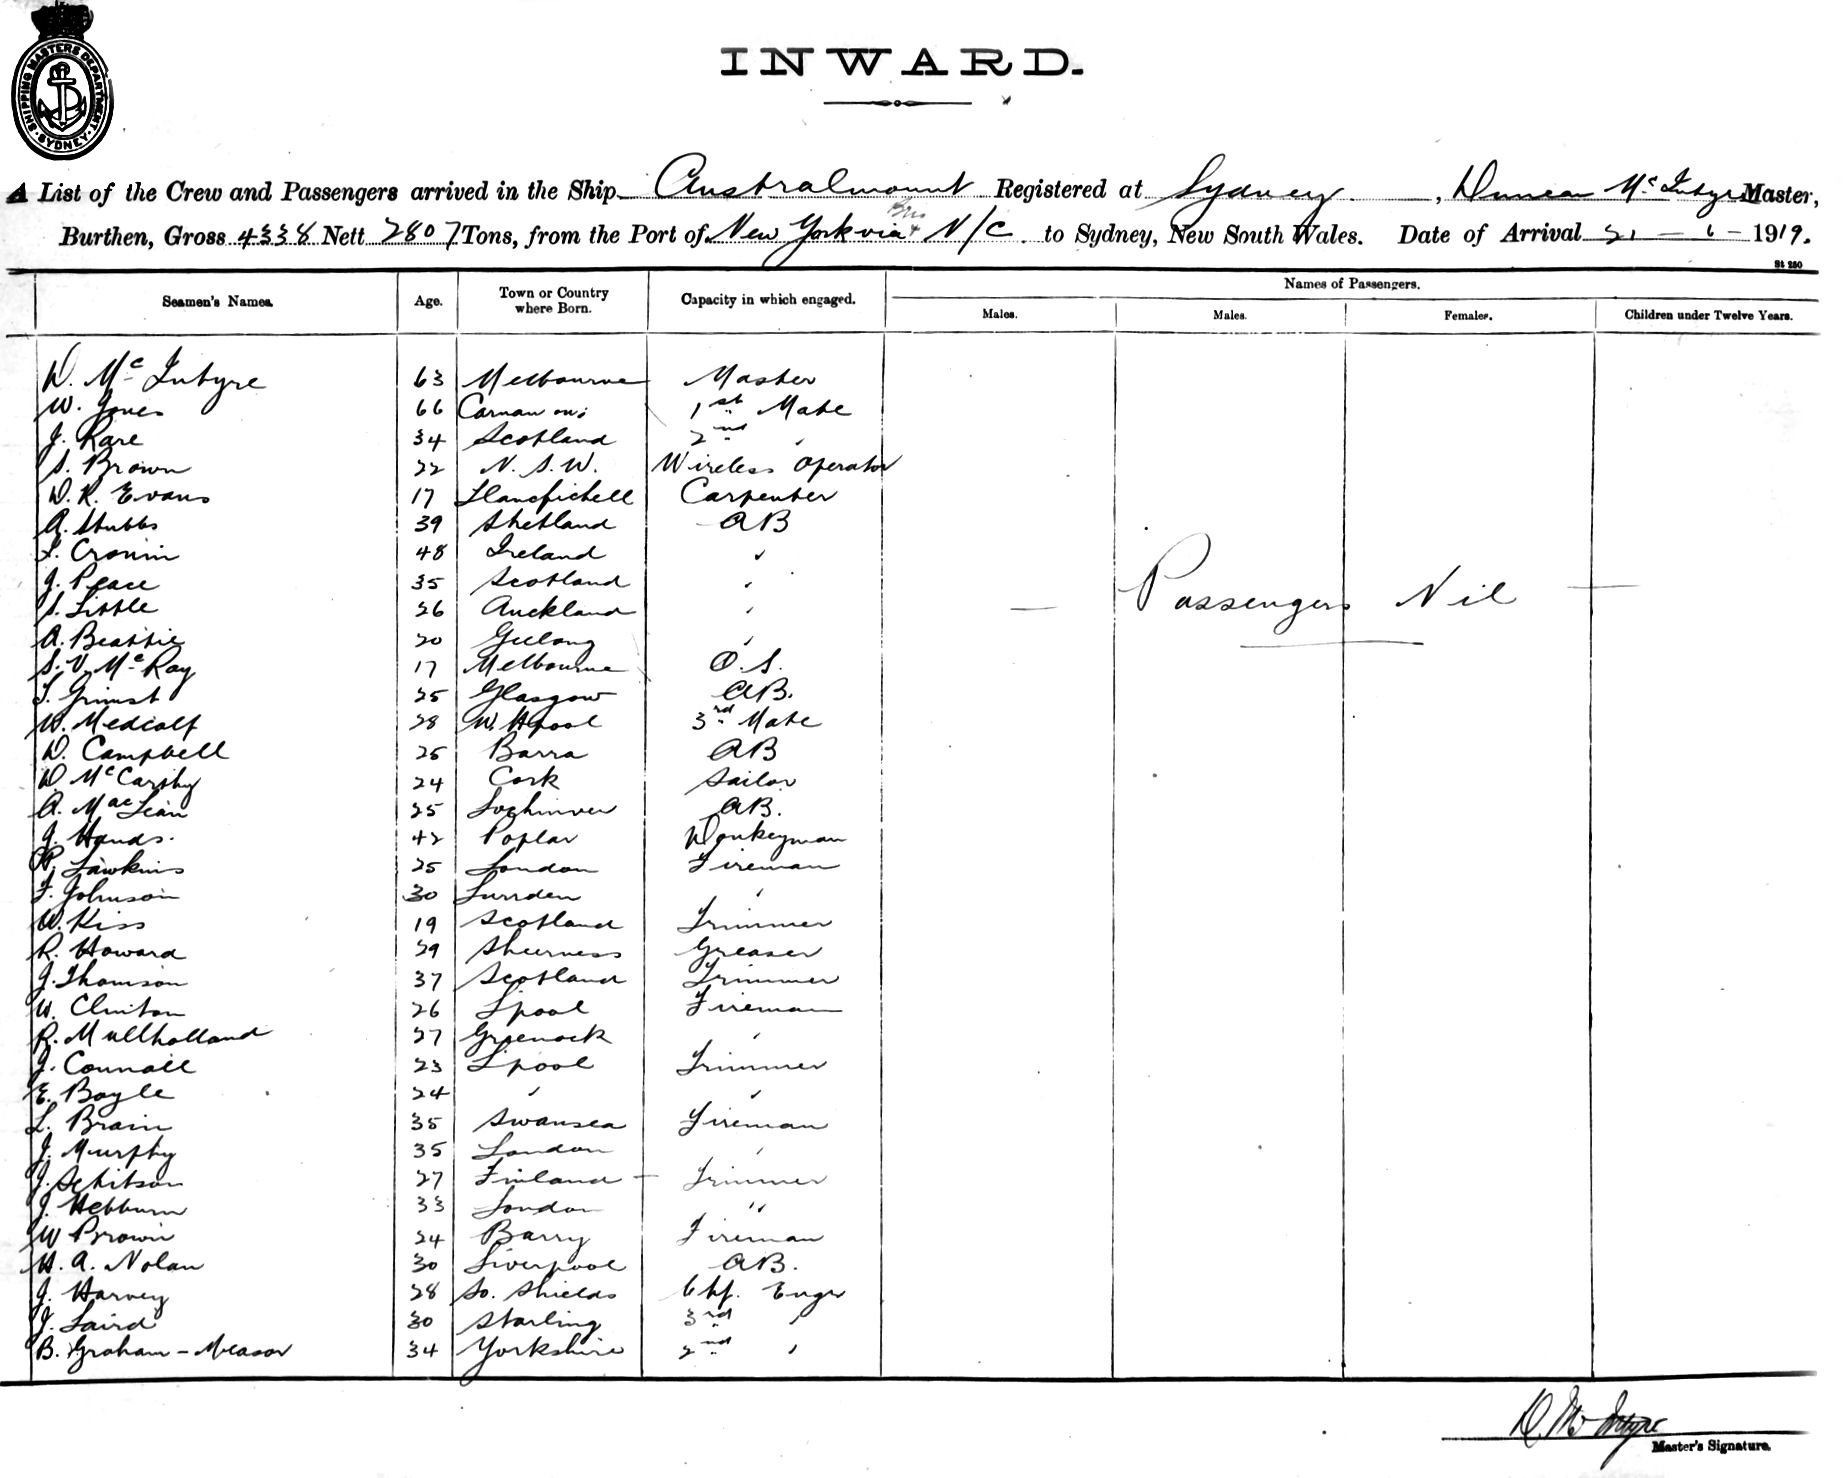 SHIPPING MASTERS DEPARTMENT · SYDNEY ·
INWARD.
A List of the Crew and Passengers arrived in the Ship Australmount Registered at Sydney, Duncan McIntyre Master,
Burthen, Gross 4338 Nett 2807 Tons, from the Port of New York via Bris + N/C to Sydney, New South Wales. Date of Arrival 21 - 6 - 1919.
St 250
Seamen's Names. Age. Town or Country where Born. Capacity in which engaged. Names of Passengers.
Males. Males. Females. Children under Twelve Years.
D. McIntyre 63 Melbourne Master
W. Jones 66 1st Mate
J. Rare 34 Scotland 2nd "
S. Brown 22 N.S.W. Wireless Operator
D. R. Evans 17 Carpenter
A. Stubbs 39 Shetland AB
Cronin 48 Ireland "
J. Peace 35 Scotland "
S. Little 26 Auckland "
A. Beattie 20 Geelong "
S. V. McRay 17 Melbourne O.S.
25 Glasgow AB.
W. Medcalf 28 W. Hpool 3rd Mate
D. Campbell 25 Barra AB
D McCarthy 24 Cork Sailor
A. MacLean 25 Lochinver AB.
J. Hands. 42 Poplar Donkeyman
Lawkins 25 London Fireman
F. Johnson 30 "
W. Kiss 19 Scotland Trimmer
R. Howard 29 Sheerness Greaser
J. Thomson 37 Scotland Trimmer
Clinton 26 L'pool Fireman
R. Mullholland 27 Greenock "
J. Connall 23 L'pool Trimmer
E. Boyle 24 " "
L. Brain 35 Swansea Fireman
J. Murphy 35 London "
J. 27 Finland Trimmer
J. Hebburn 33 London "
W Brown 24 Barry Fireman
H. A. Nolan 30 Liverpool AB.
J. Harvey 28 So. Shields Chf. Engr
J. Laird 30 Starling 3rd "
B. Graham-Measor 34 Yorkshire 2nd "
— Passengers Nil —
D. McIntyre
Master's Signature.